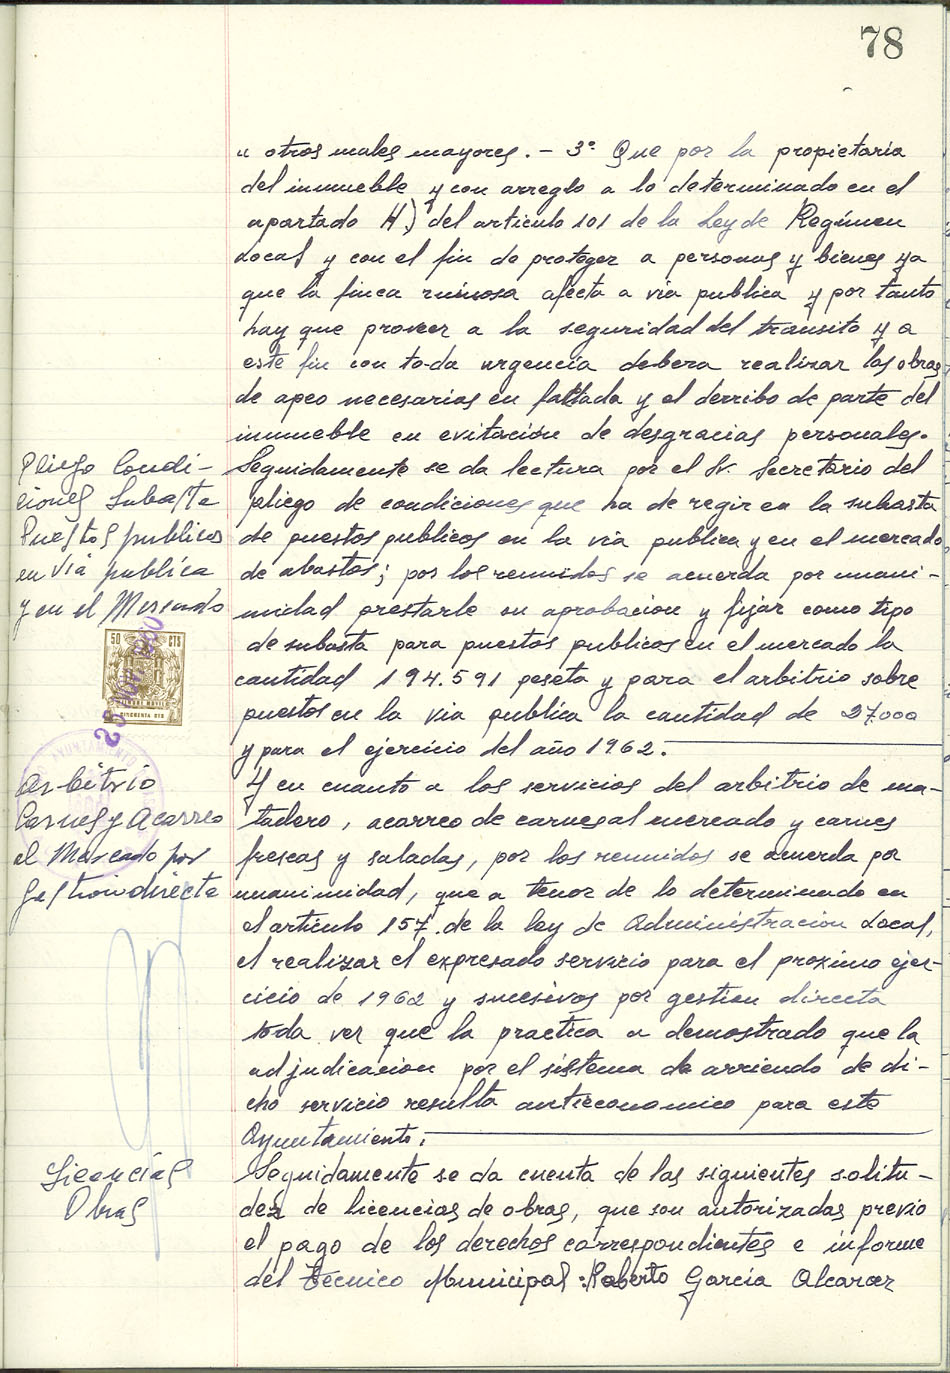 78
" otros males mayores. - 3º Que por la propietaria
del inmueble y con arreglo a lo determinado en el
apartado H) del articulo 101 de la Ley de Regimen
Local y con el fin de proteger a personas y bienes ya
que la finca ruinosa afecta a via publica y por tanto
hay que proveer a la seguridad del transito y a
este fin con toda urgencia debera realizar las obras
de apeo necesarias en fachada y el derribo de parte del
inmueble en evitación de desgracias personales.
Pliego Condi-
ciones Subasta
Puestos publicos
en Via publica
y en el Mercado
Seguidamente se da lectura por el Sr. Secretario del
pliego de condiciones que ha de regir en la subasta
de puestos publicos en la via publica y en el mercado
de abastos; por los reunidos se acuerda por unani-
midad prestarle su aprobacion y fijar como tipo
de subasta para puestos publicos en el mercado la
cantidad 194.591 peseta y para el arbitrio sobre
puestos en la via publica la cantidad de 27.000
y para el ejercicio del año 1962.
50 CTS
CINCUENTA CTS
AYUNTAMIENTO
Arbitrio
Carnes y Acarreo
al Mercado por
Gestion directa
Y en cuanto a los servicios del arbitrio de ma-
tadero, acarreo de carnes al mercado y carnes
frescas y saladas, por los reunidos se acuerda por
unanimidad, que a tenor de lo determinado en
el articulo 157. de la ley de Administración Local,
el realizar el expresado servicio para el proximo ejer-
cicio de 1962 y sucesivos por gestion directa
toda vez que la practica a demostrado que la
adjudicacion por el sistema de arriendo de di-
cho servicio resulta antieconomico para este
Ayuntamiento.
Licencias
Obras
Seguidamente se da cuenta de las siguientes solitu-
des de licencias de obras, que son autorizadas previo
el pago de los derechos correspondientes e informe
del Tecnico Municipal: Roberto García Alcaraz